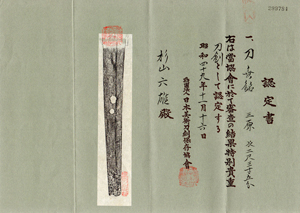 認定書
一、刀 無銘 三原 長二尺三寸五分
右は當協會に於て審査の結果特別貴重
刀剣として認定する
昭和四十九年十一月十六日
財團法人日本美術刀剣保存協會
杉山六雄殿